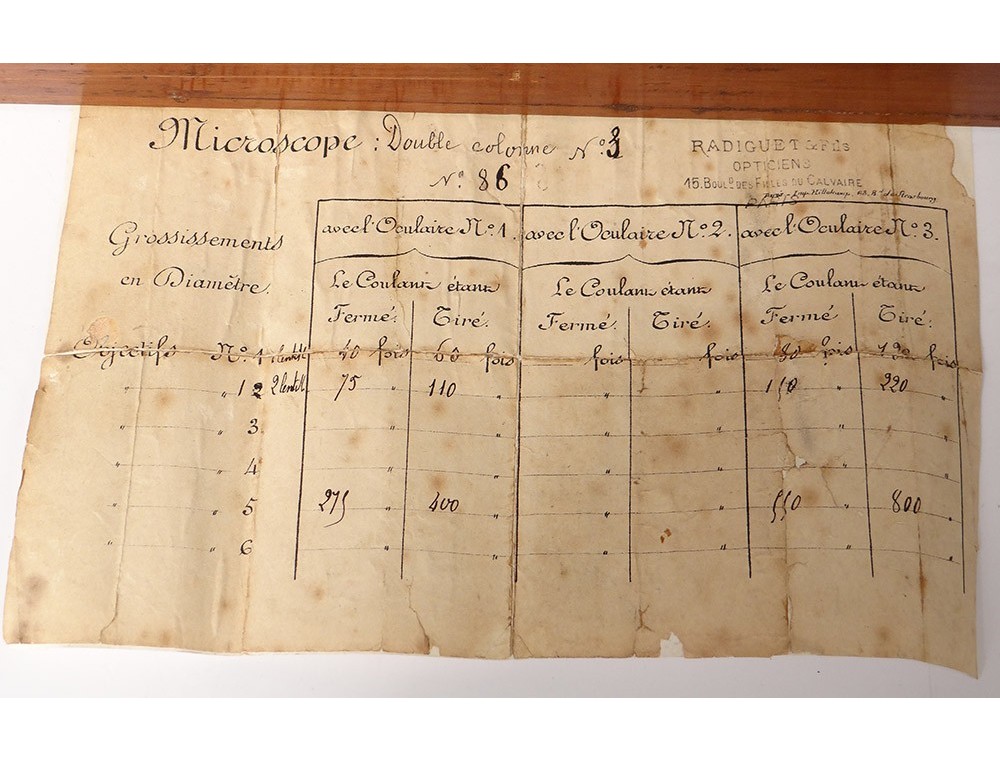 Microscope : Double colonne Nº 3
Nº 86
RADIGUET & Fils
OPTICIENS
15. BOULD DES FILLES DU CALVAIRE
PARIS
Grossissements
en Diamètre.
avec l'Oculaire Nº 1. avec l'Oculaire Nº 2. avec l'Oculaire Nº 3.
Le Coulant étant Le Coulant étant Le Coulant étant
Fermé. Tiré. Fermé. Tiré. Fermé Tiré.
Objectifs Nº 1 1 lentill 40 fois 60 fois fois fois 80 fois 120 fois
" " 1 2 2 lentill 75 " 110 " " " 150 " 220 "
" " 3 " " " " " "
" " 4 " " " " " "
" " 5 275 " 400 " " " 550 " 800 "
" " 6 " " " " " "